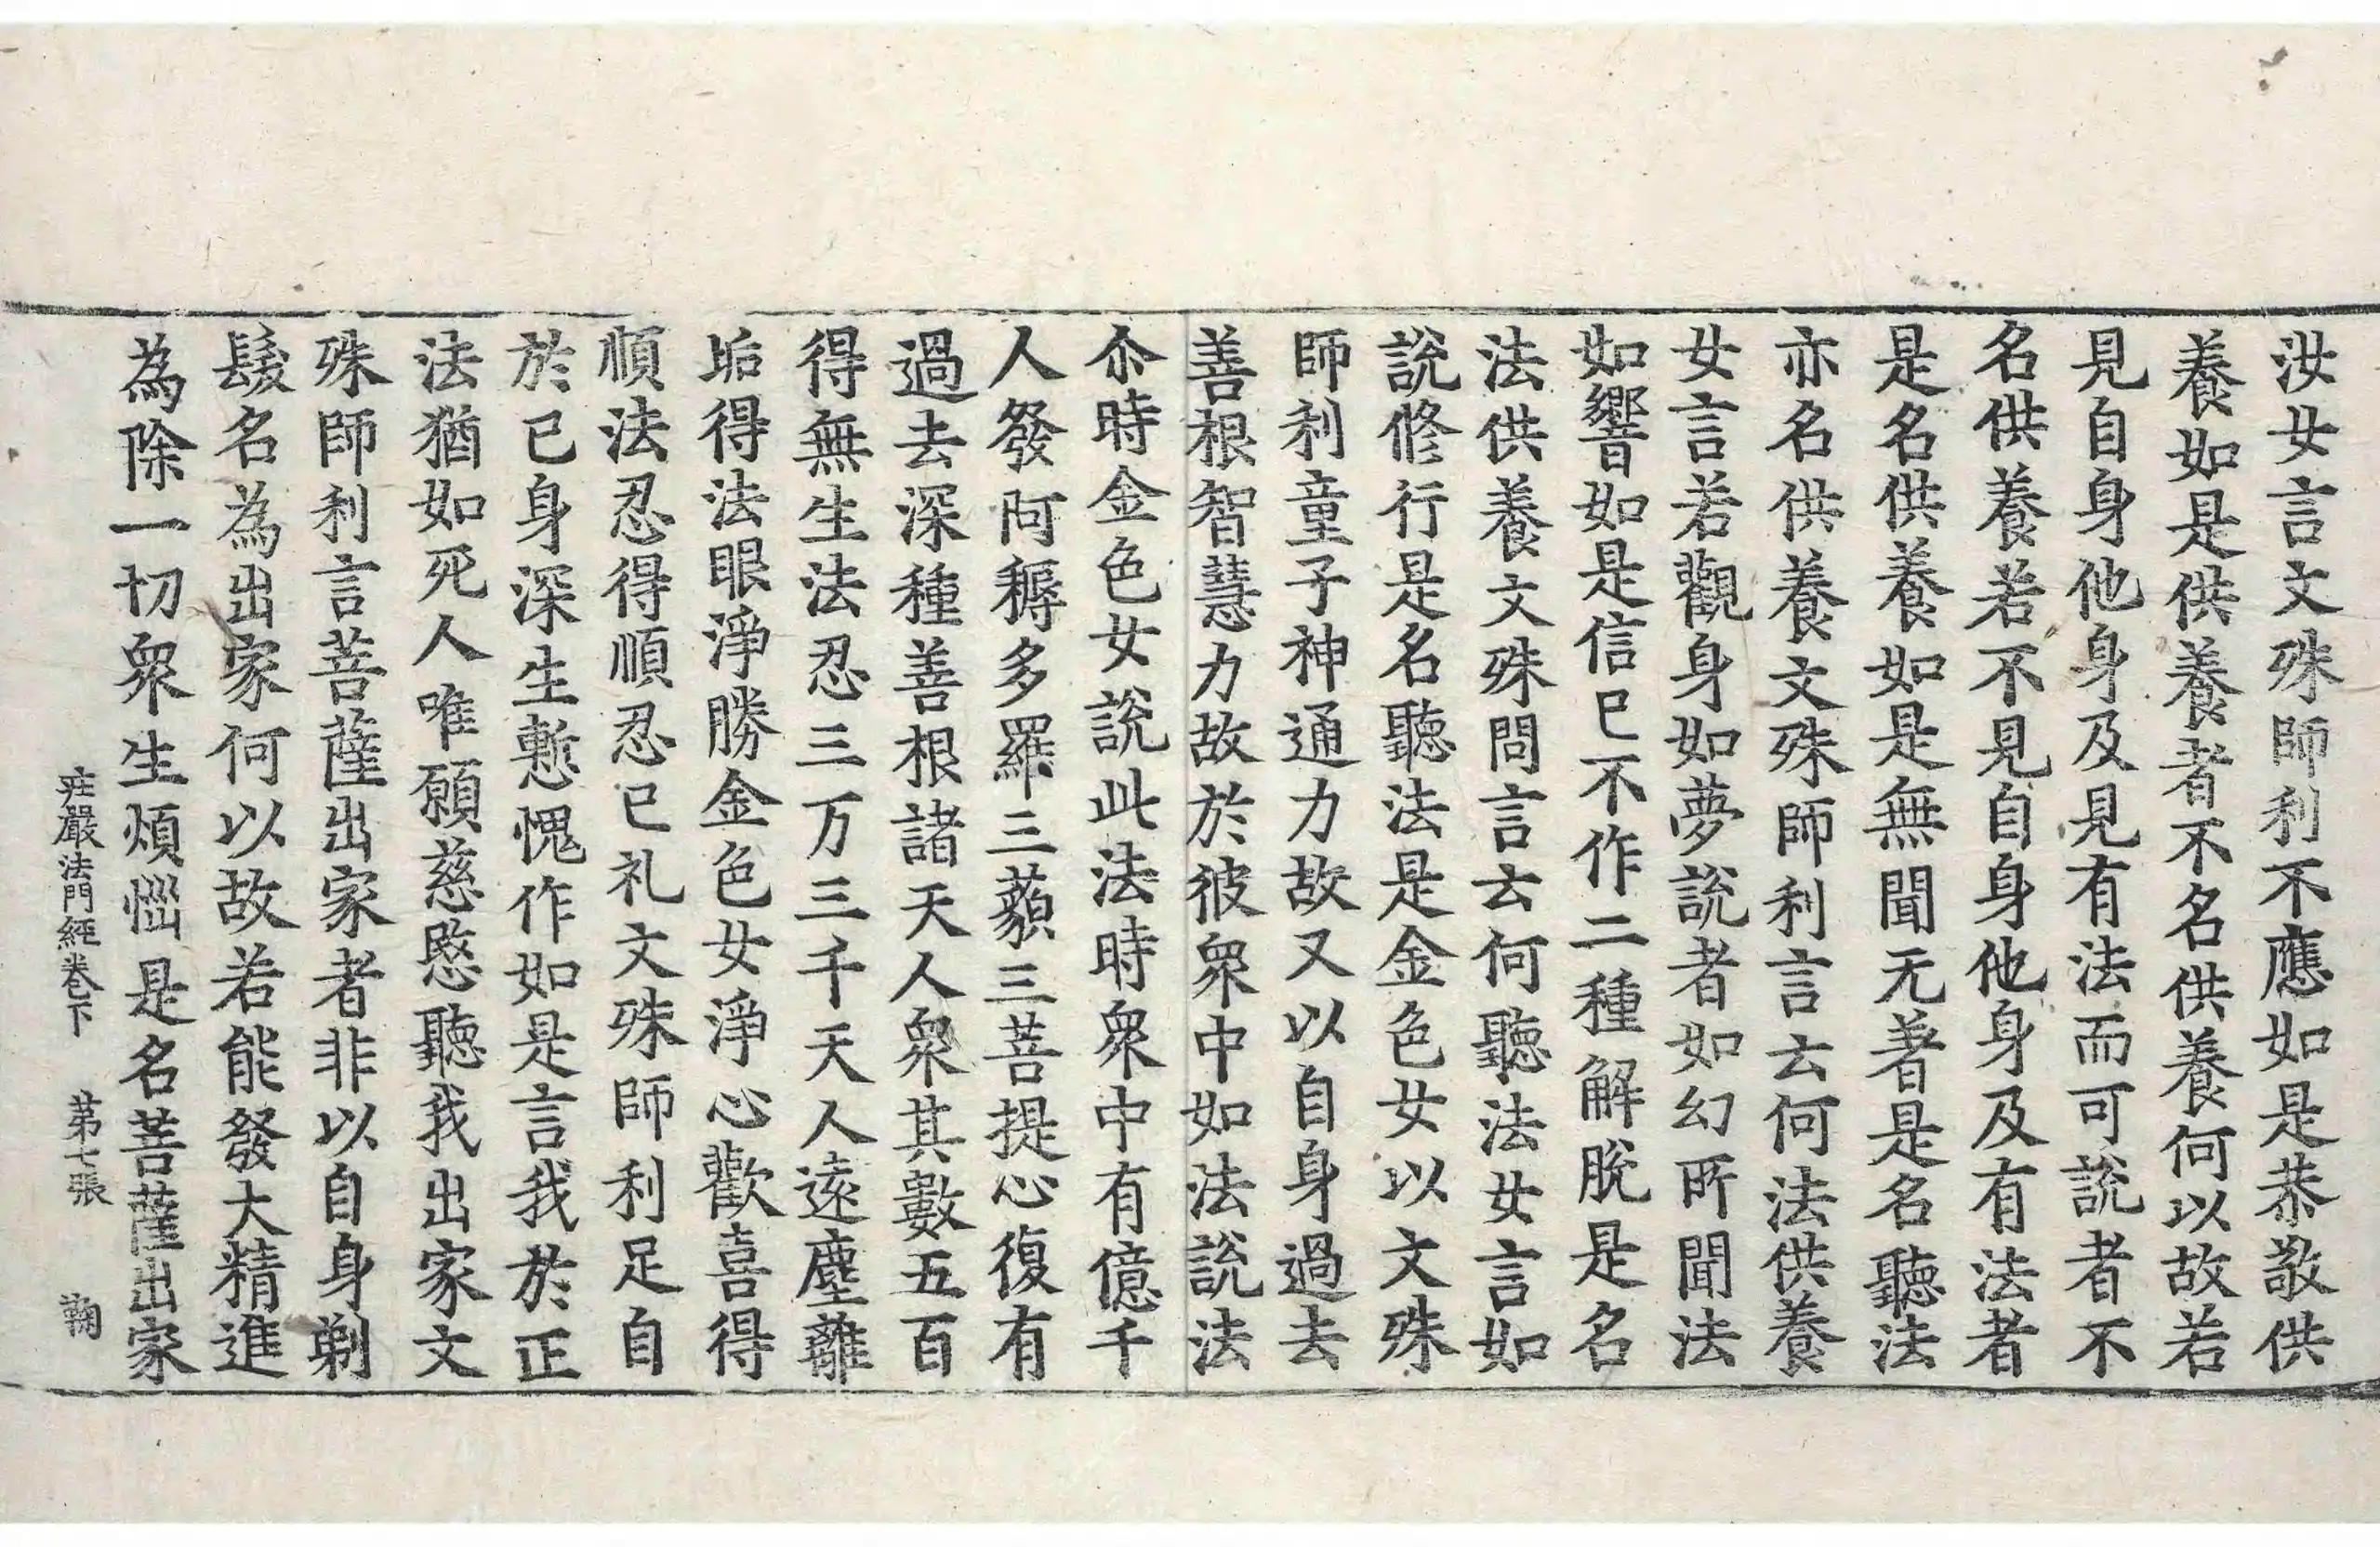 汝女言文殊師利不應如是恭敬供
養如是供養者不名供養何以故若
見自身他身及見有法而可說者不
名供養若不見自身他身及有法者
是名供養如是無聞无著是名聽法
亦名供養文殊師利言云何法供養
女言若觀身如夢說者如幻所聞法
如響如是信已不作二種解脫是名
法供養文殊問言云何聽法女言如
說修行是名聽法是金色女以文殊
師利童子神通力故又以自身過去
善根智慧力故於彼眾中如法說法
尒時金色女說此法時眾中有億千
人發阿耨多羅三藐三菩提心復有
過去深種善根諸天人眾其數五百
得無生法忍三万三千天人遠塵離
垢得法眼淨勝金色女淨心歡喜得
順法忍得順忍已礼文殊師利足自
於已身深生慙愧作如是言我於正
法猶如死人唯願慈愍聽我出家文
殊師利言菩薩出家者非以自身剃
髮名為出家何以故若能發大精進
為除一切眾生煩惱是名菩薩出家
庄嚴法門經卷下 第七張 鞠